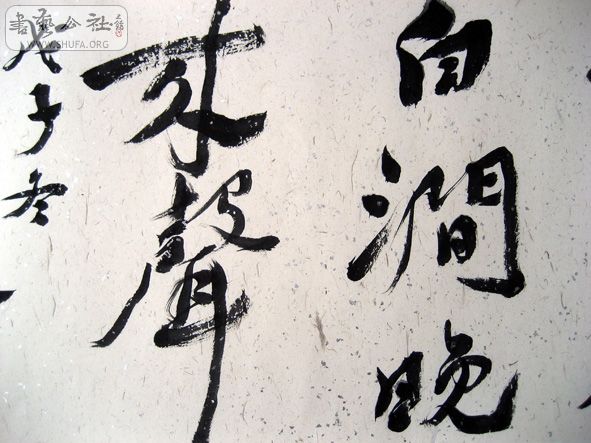 白澗晚
聲
戊子冬
書藝公社
WWW.SHUFA.ORG